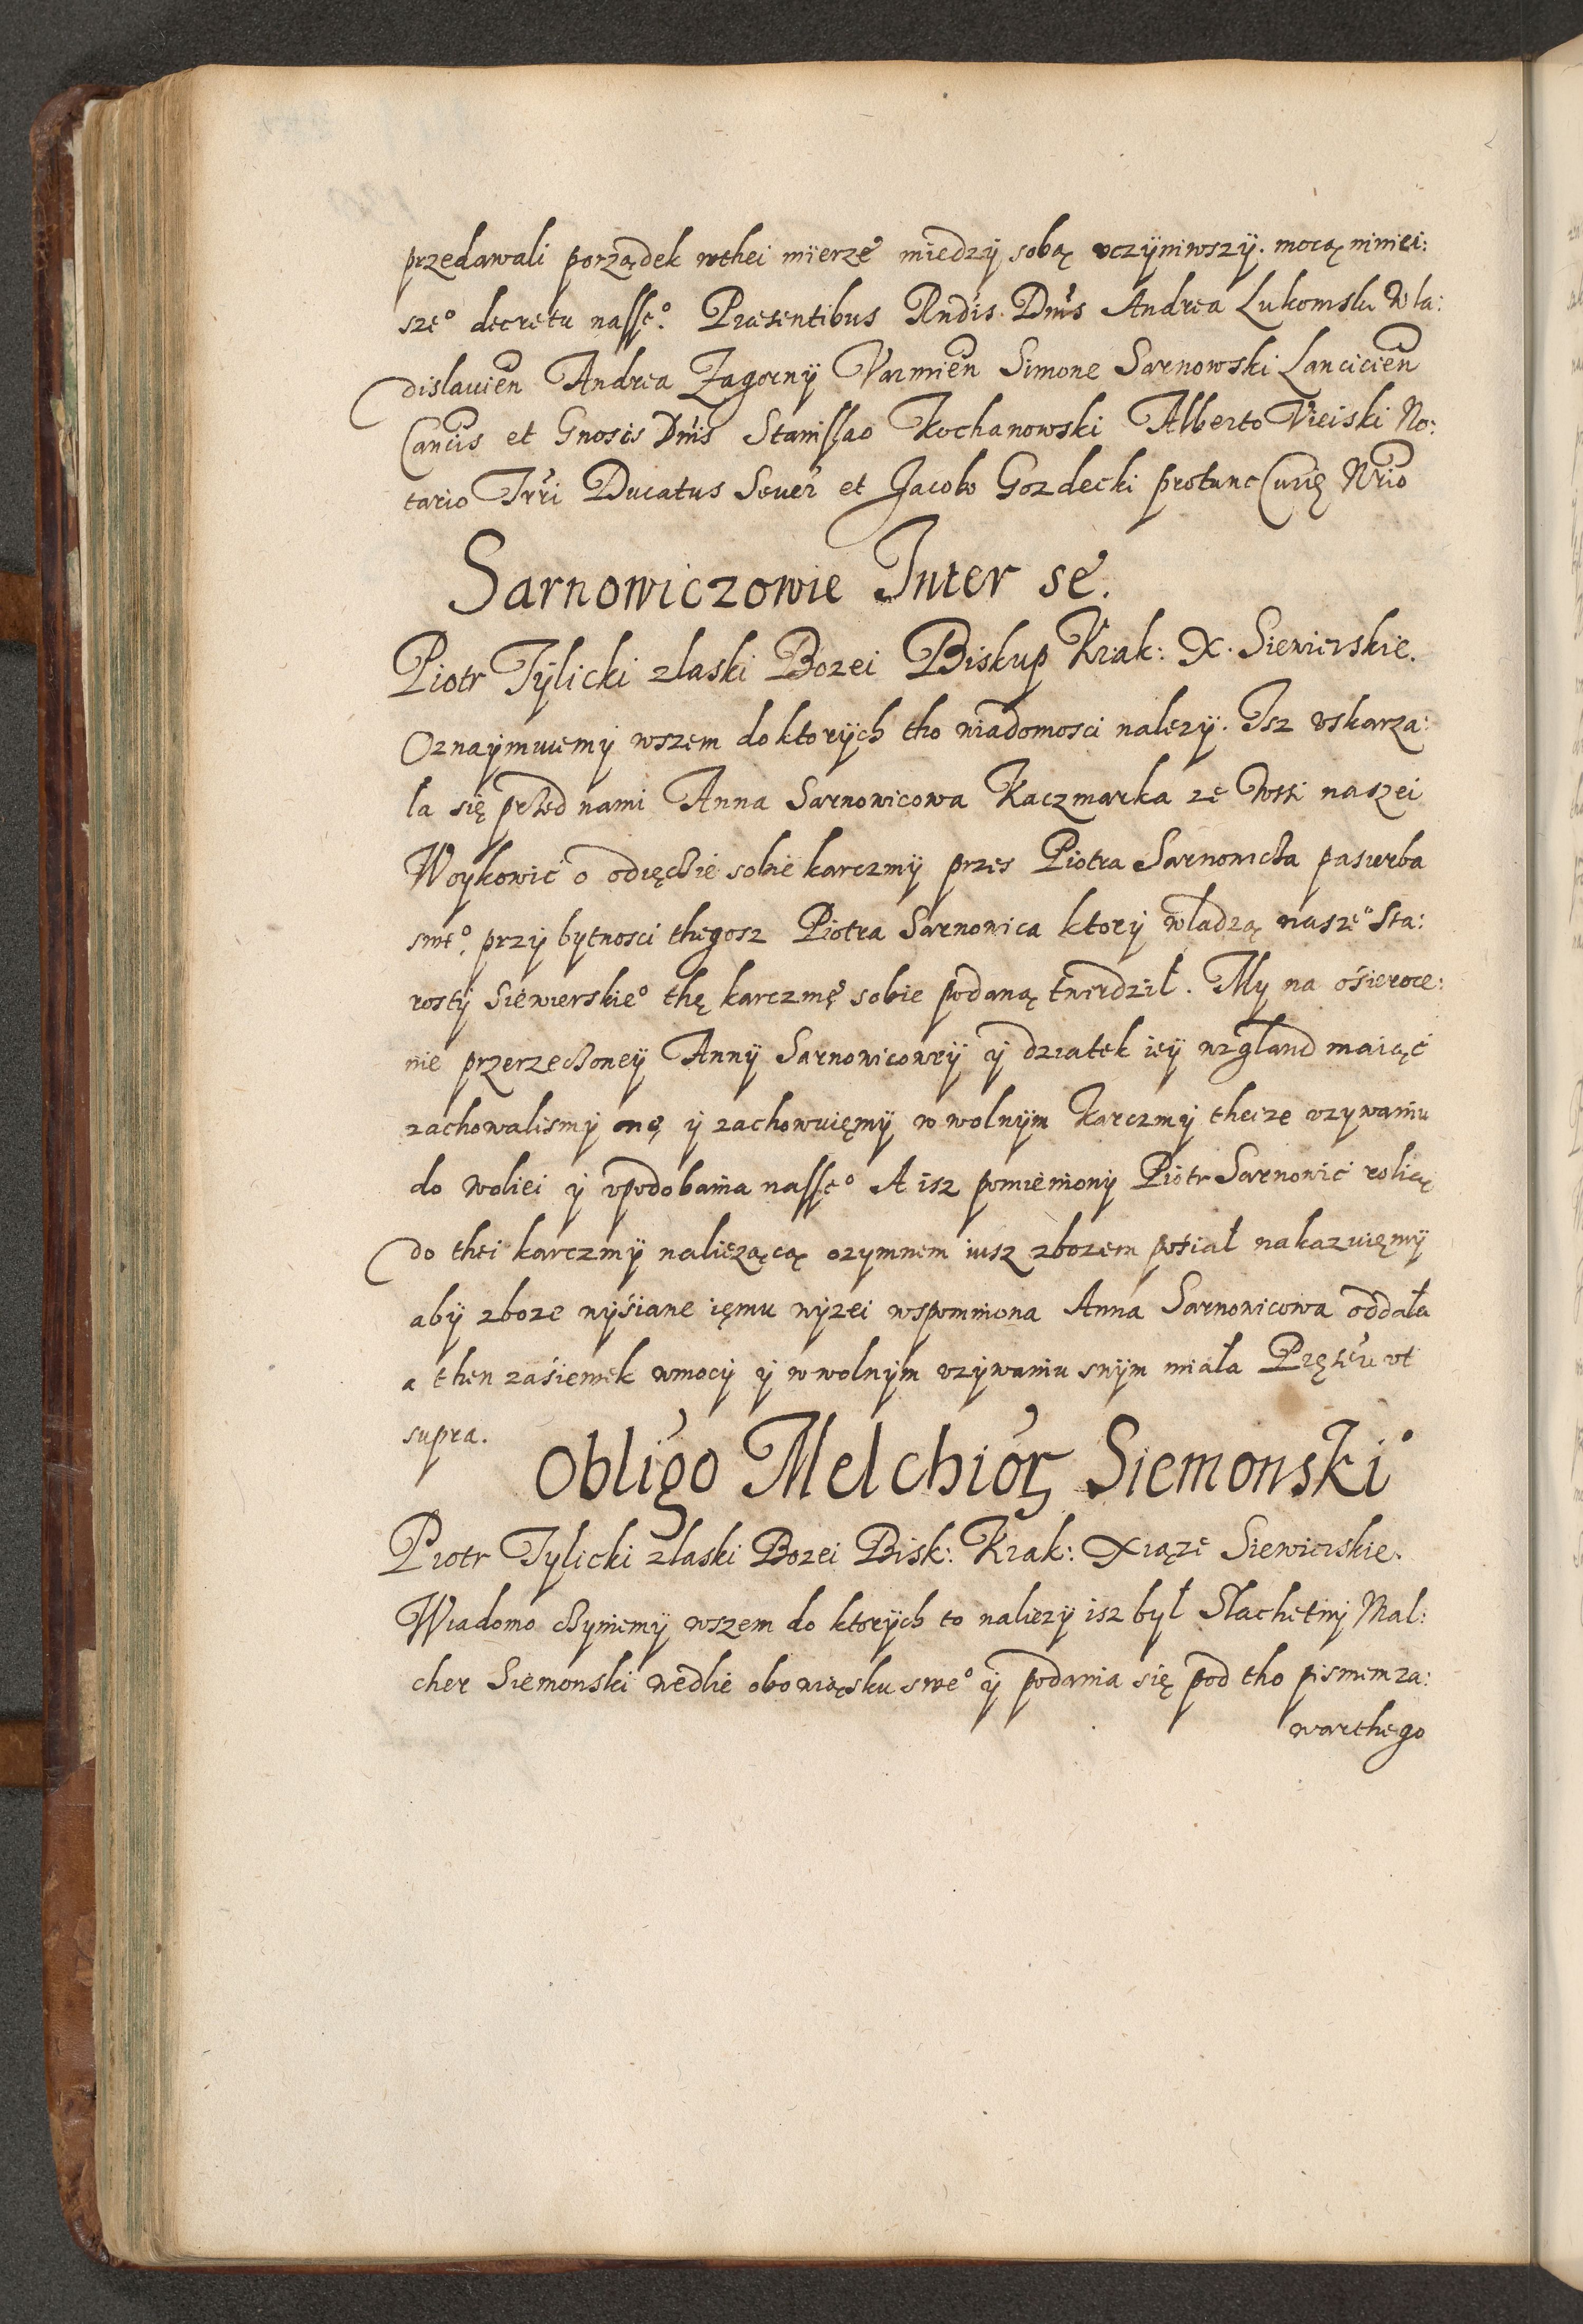 przedawali porządek wthei mierze miedzy sobą vczyniwszy. mocą niniei:
sze° decretu nasse°. Præsentibus Rndis. Dnis Andrea Lukomski Wla:
dislauien Andrea Zagorny Varmien Simone Sarnowski Lancicien
Cancis et Gnosis Dnis Stanislao Kochanowski Alberto Vieiski No:
tario Trri Ducatus Seuer et Jacobo Gozdecki protunc Curię Nrio
Sarnowiczowie Inter se.
Piotr Tÿlicki zlaski Bozei Biskup Krak: X. Siewierskie.
Oznaÿmuiemÿ wszem doktorÿch tho wiadomosci nalezÿ. Isz vskarza:
la się przed nami Anna Sarnowicowa Kaczmarka ze Wsi naszei
Woykowic o odięcie sobie karczmÿ przes Piotra Sarnowicza pasierba
swe°. przÿ bytnosci thegosz Piotra Sarnowica ktorÿ władzą nasze° Sta:
rostÿ Siewierskie° thę karczmę sobie podaną twierdził. My na ośieroce:
nie przerzeczoneÿ Annÿ Sarnowicowÿ ÿ dziatek ieÿ wzgland maiąc
zachowalismÿ onę ÿ zachowuięmÿ w wolnÿm karczmÿ theize vzywaniu
do woliei ÿ vpodobania nasse° A isz pomienionÿ Piotr Sarnowic rolią
do thei karczmÿ nalieząącą ozymnem iusz zbozem posiał nakazuięmÿ
abÿ zboze wÿsiane ięmu wÿzei wspomniona Anna Sarnowicowa oddała
a then zaśiewek wmocÿ ÿ w wolnÿm vzÿwaniu swÿm miała Pręsen vt
supra.
Obligo Melchior Siemonski°
Piotr Tylicki zlaski Bozei Bisk: Krak: Xiąze Siewierskie.
Wiadomo czyniemÿ wszem do ktorÿch to naliezÿ isz był Slachetnÿ Mal:
cher Siemonski wedlie obowiąsku swe° ÿ podania się pod tho pismem za:
warthego